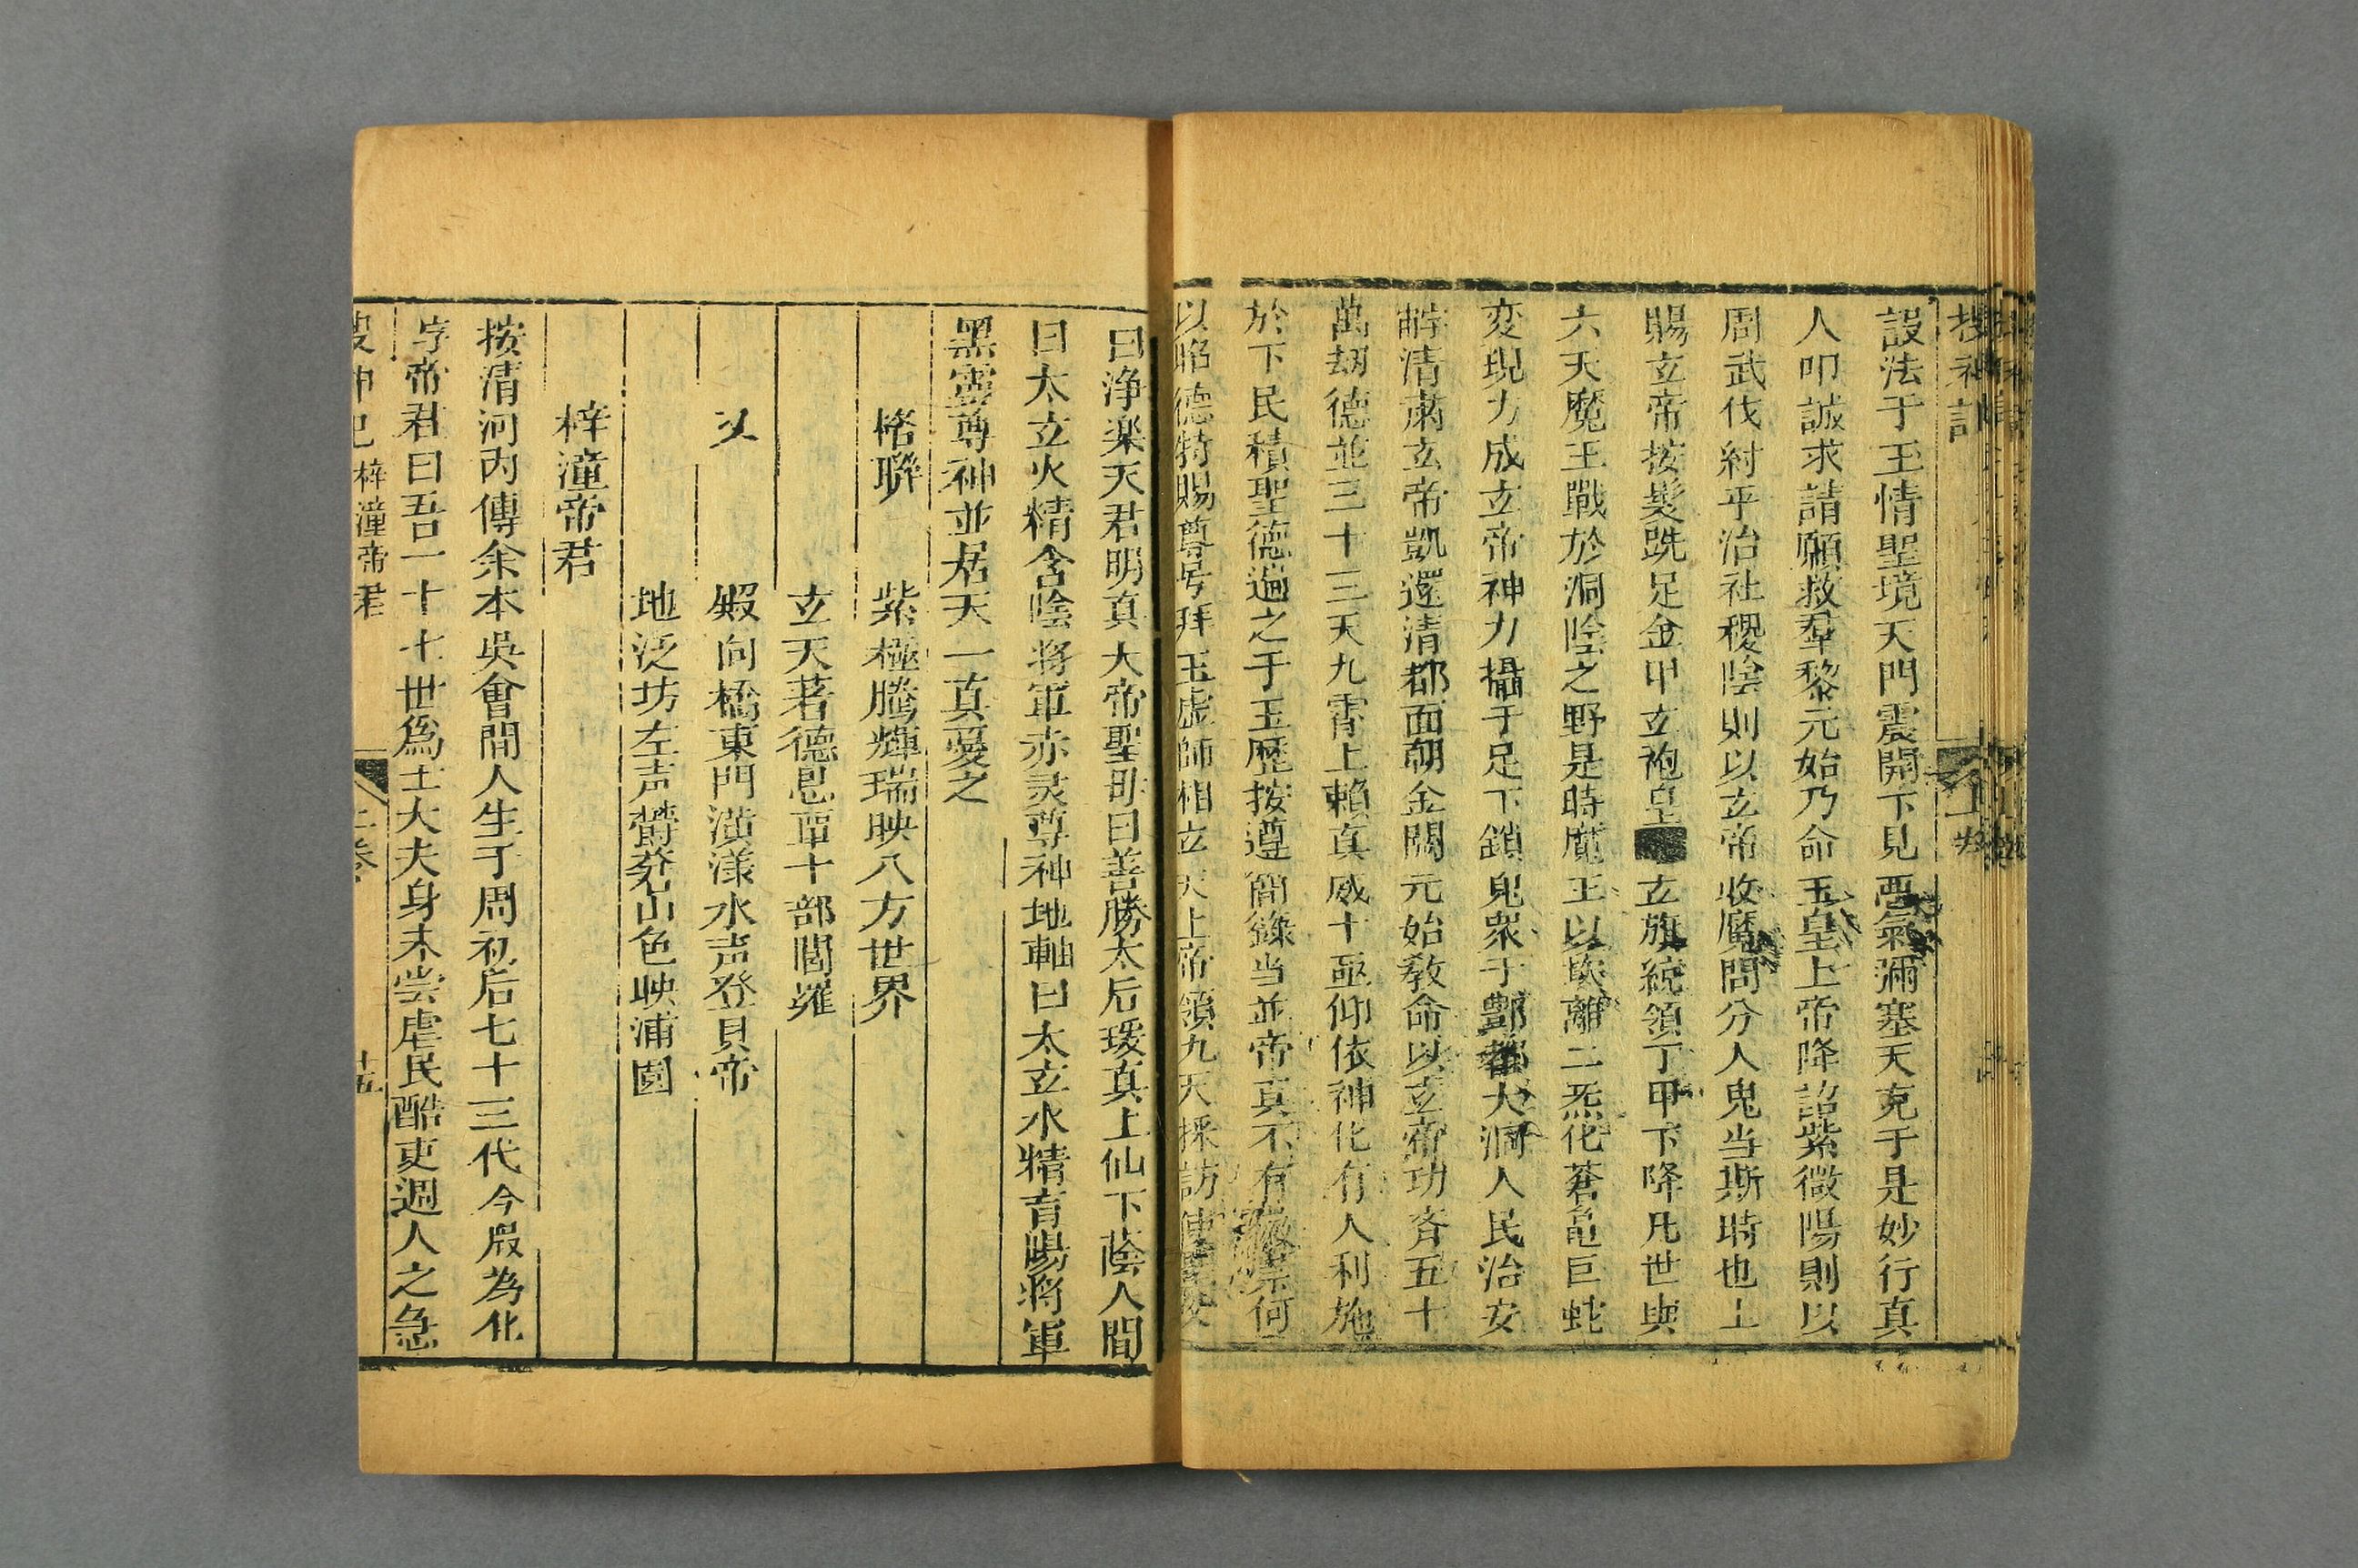 搜神記 上卷
設法于玉情聖境天門震開下見惡氣彌塞天充于是妙行真
人叩誠求請願救羣黎元始乃命玉皇上帝降詔紫微陽則以
周武伐紂平治社稷陰則以玄帝收魔間分人鬼当斯時也上
賜玄帝按髮跣足金甲玄袍皂 玄旗統領丁甲下降凡世與
六天魔王戰於洞陰之野是時魔王以坎離二炁化蒼亀巨蛇
変現方成玄帝神力攝于足下鎖鬼衆于酆都大洞人民治安
清肅玄帝凱還清都面朝金闕元始教命以玄帝功齊五十
萬劫德並三十三天九霄上賴真威十極仰依神化有人利施
於下民積聖德遍之于玉歷按遵簡錄当並帝真不有徽崇何
以昭德特賜尊号拜玉虛師相玄天上帝領九天採訪使聖父
曰浄楽天君明真大帝聖母曰善勝太后瓊真上仙下蔭人間
曰太玄火精含陰將軍赤灵尊神地軸曰太玄水精育陽將軍
黑靈尊神並居天一真慶之
格聯 紫極騰輝瑞映八方世界
玄天著德恩覃十部閻羅
又 殿向橋東門潢漾水声登貝帝
地泛坊左声鬱葊山色映浦園
梓潼帝君
按清河內傳余本吳會間人生于周初后七十三代今殷為化
字帝君曰吾一十七世爲士大夫身未尝虐民酷吏週人之急
搜神記 梓潼帝君 上卷 十五